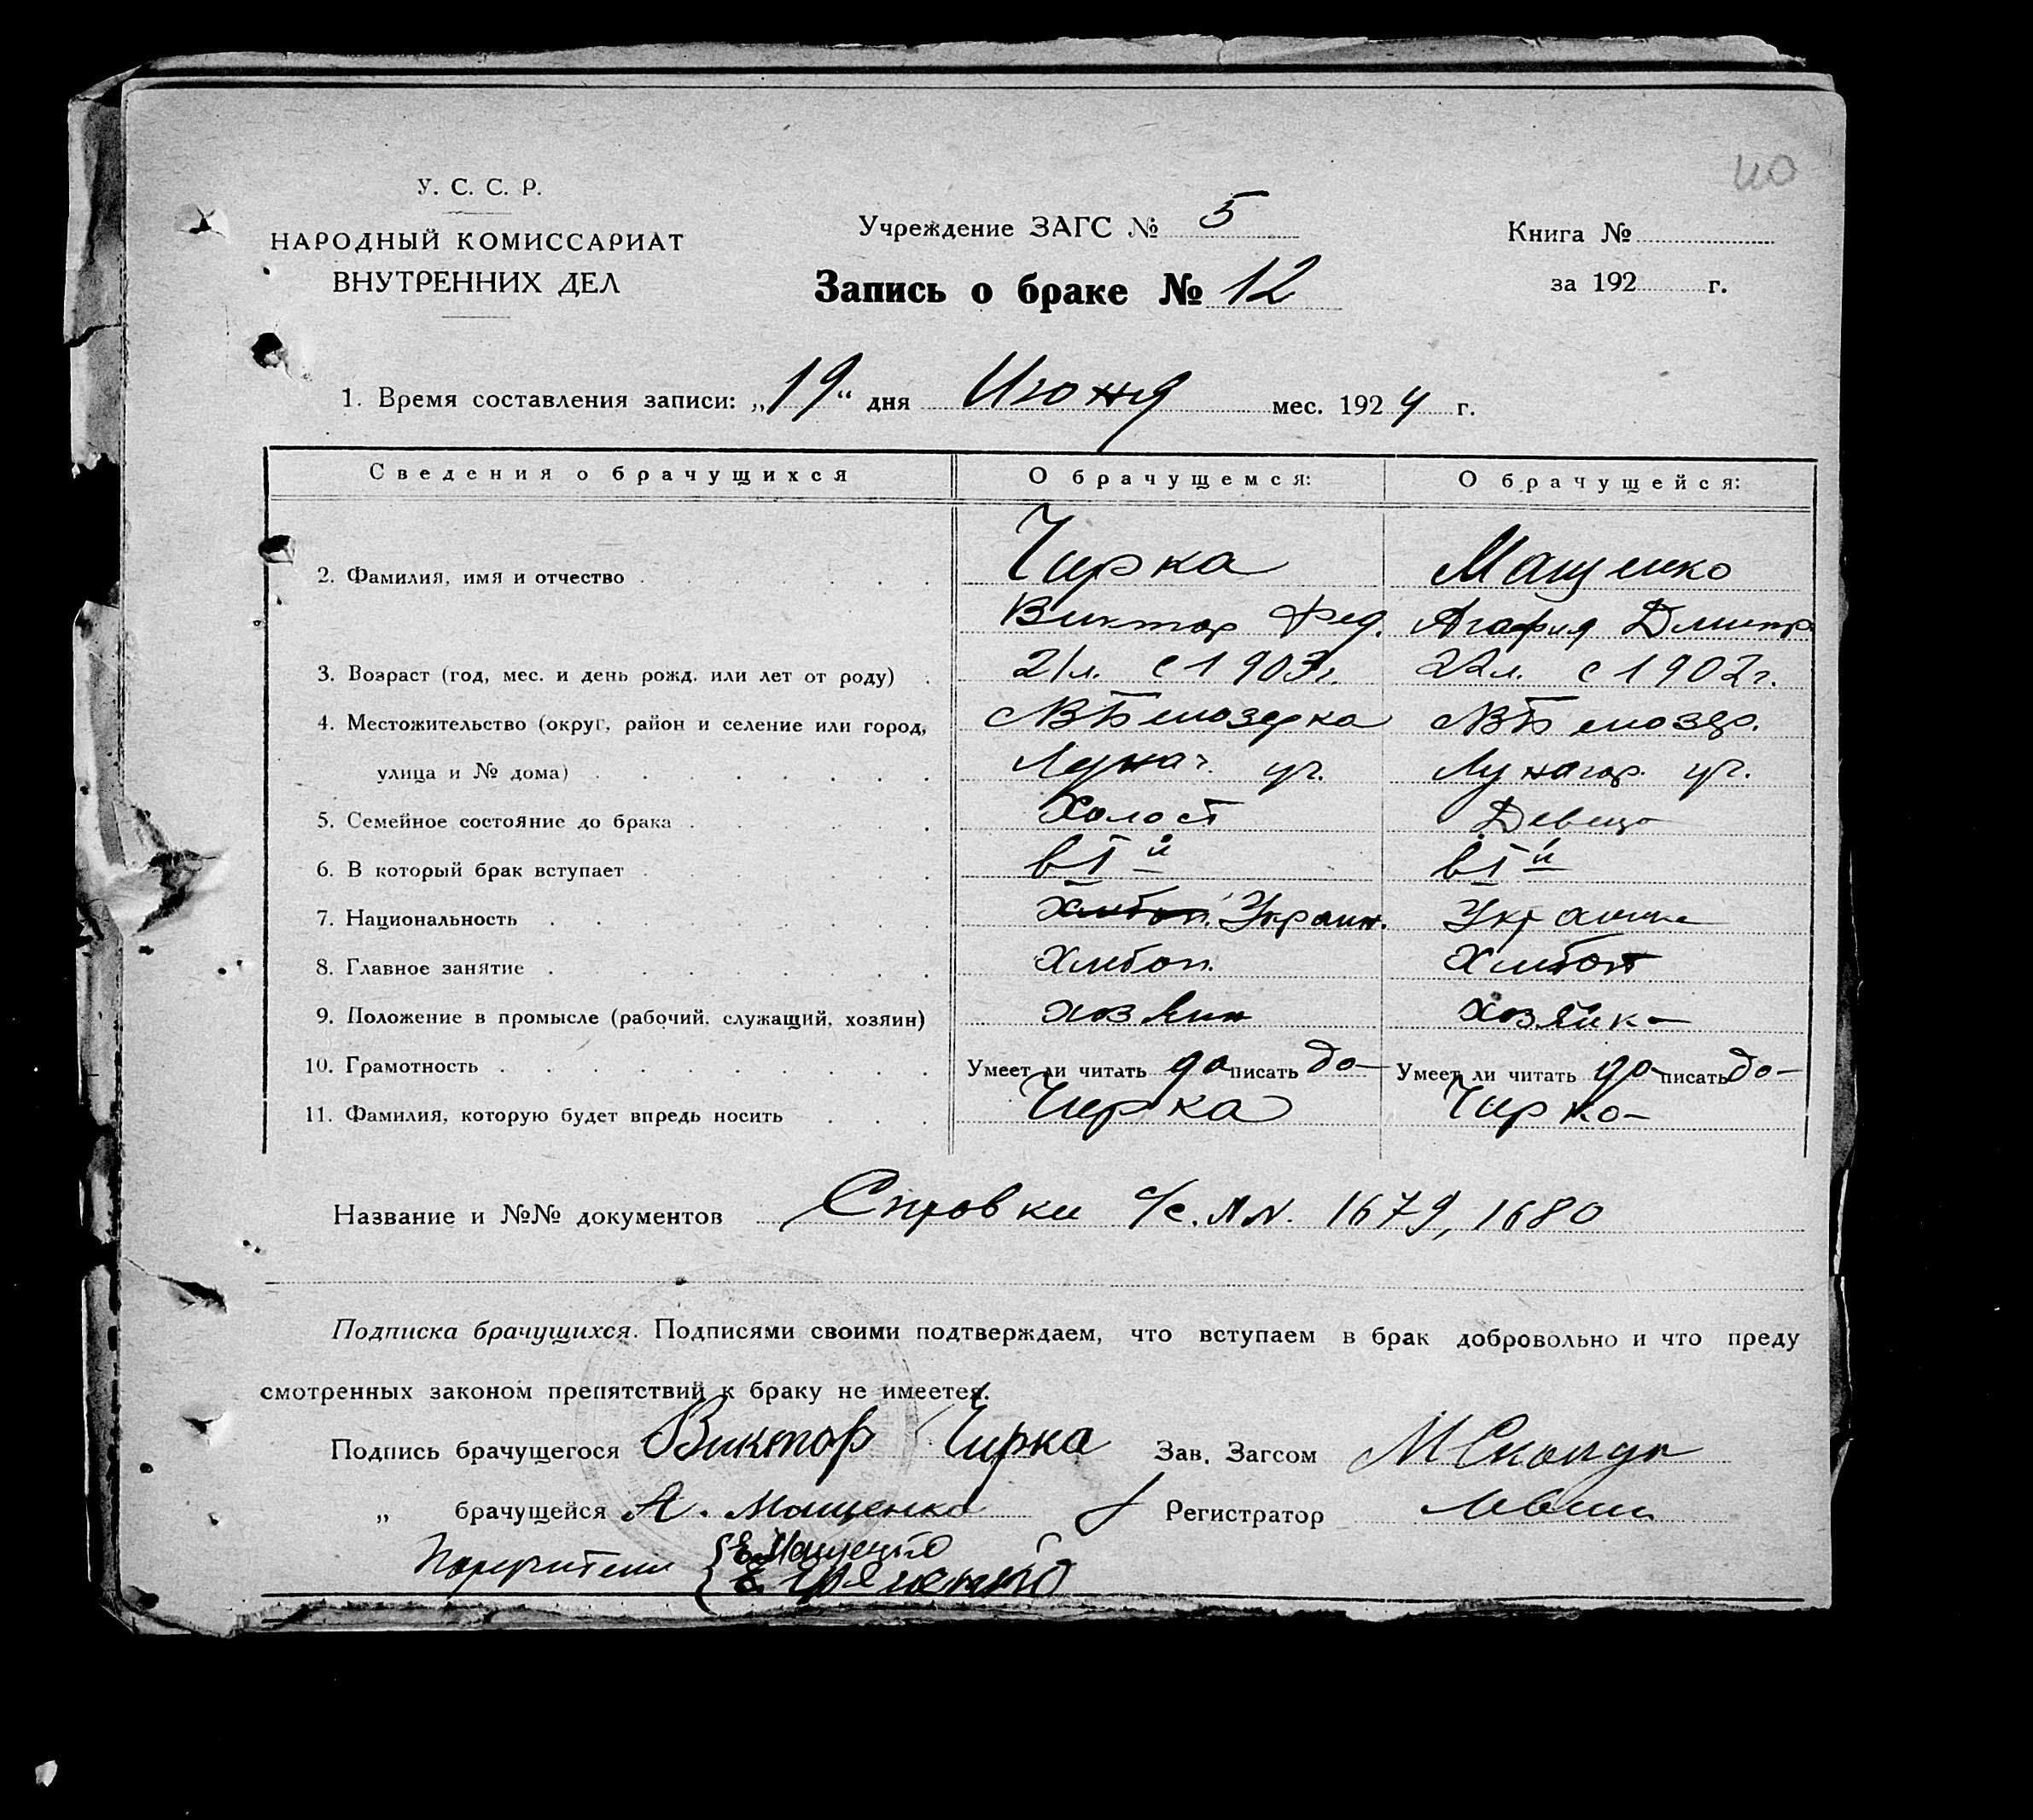 40
У. С. С. Р.
НАРОДНЫЙ КОМИССАРИАТ
ВНУТРЕННИХ ДЕЛ
Учреждение ЗАГС № 5
Запись о браке № 12
Книга №
за 192 г.
1. Время составления записи: „19“ дня Июня мес. 1924 г.
Сведения о брачущихся О брачущемся: О брачущейся:
2. Фамилия, имя и отчество Чирка Мащенко
Виктор Фед. Агафия Дмитр.
3. Возраст (год, мес. и день рожд. или лет от роду) 21л. с 1903г. 22л. с 1902г.
4. Местожительство (округ, район и селение или город, Белозерка Белозер.
улица и № дома) ул. ул.
5. Семейное состояние до брака Холост Девица
6. В который брак вступает в I й в I й
7. Национальность Хлибоп. Украин. Украинка
8. Главное занятие Хлибоп. Хлибоп
9. Положение в промысле (рабочий, служащий, хозяин) хозяин хозяйка
10. Грамотность Умеет ли читать да писать да Умеет ли читать да писать да
11. Фамилия, которую будет впредь носить Чирка Чирка
Название и №№ документов Справки с/с. №№. 1679, 1680
Подписка брачущихся. Подписями своими подтверждаем, что вступаем в брак добровольно и что преду
смотренных законом препятствий к браку не имеется.
Подпись брачущегося Виктор Чирка Зав. Загсом
„ брачущейся А. Мащенко Регистратор
Поручители Е. Мащенко